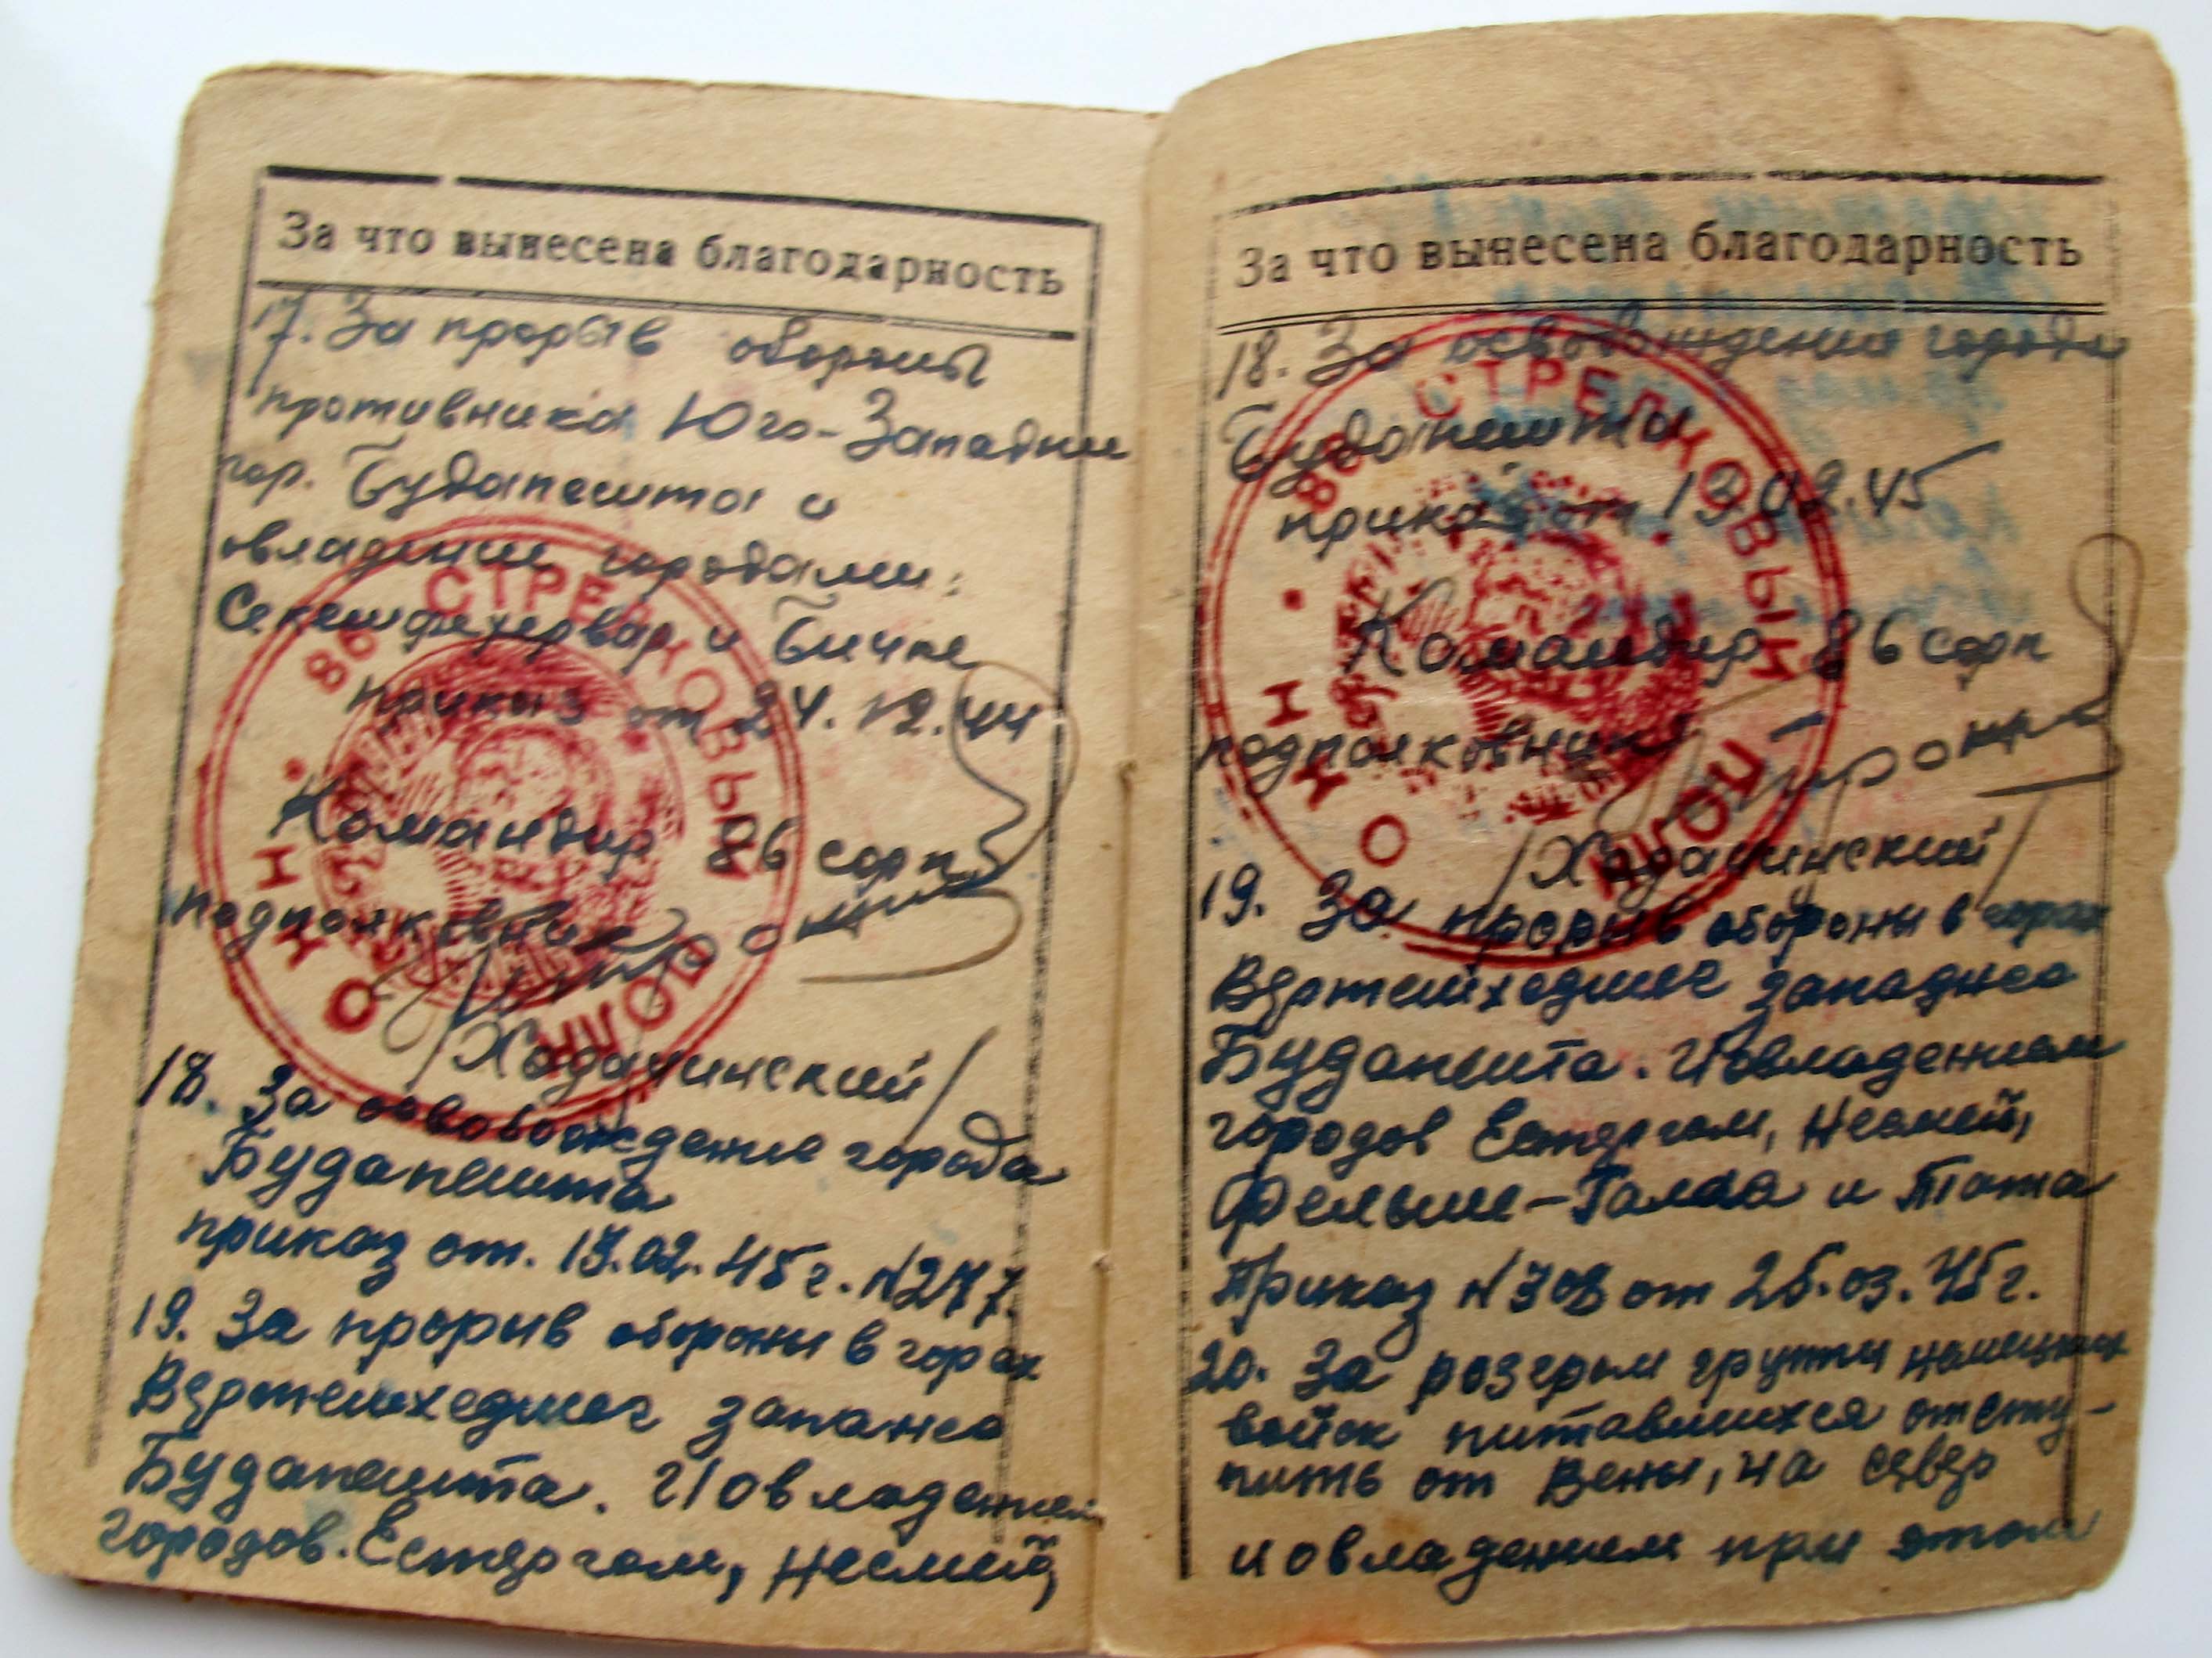 За что вынесена благодарность
17. За прорыв обороны
противника Юго-Западнее
гор. Будапешта и
овладение городами:
Секешфехервар и Бичке
приказ от 24.12.44
Командир 86 сорп
подполковник
/Хадачинский/
18. За освобождение города
Будапешта
приказ от. 13.02.45г. N277.
19. За прорыв обороны в горах
Вэртешхедшег запанее
Будапешта. И овладением
городов. Естергом, Несмей,
86 СТРЕЛКОВЫЙ ПОЛК
За что вынесена благодарность
18. За освобождение города
Будапешта
приказ от 13.02.45
Командир 86 сорп
подполковник
/Хадачинский/
19. За прорыв обороны в горах
Вэртешхедшег западнее
Будапешта. И овладением
городов Естергом, Несмей,
Фельше-Галла и Тата
Приказ N308 от 25.03.45г.
20. За розгром групы немецких
войск питавшихся отсту-
пить от Вены, на север
и овладением при этом
86 СТРЕЛКОВЫЙ ПОЛК